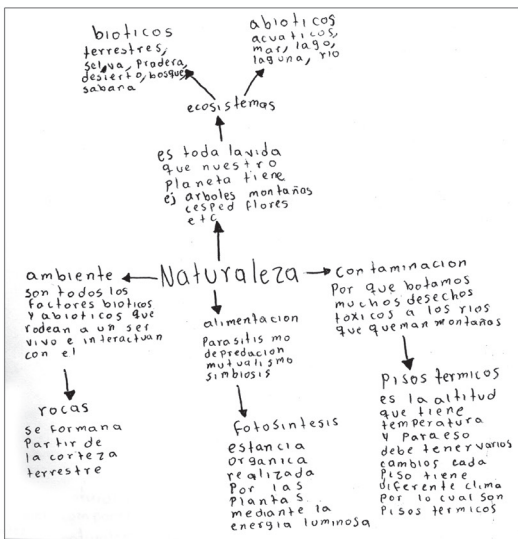 bioticos
terrestres,
selva, pradera,
desierto, bosque,
sabana
abioticos
acuaticos,
mar, lago,
laguna, rio
ecosistemas
es toda lavida
que nuestro
planeta tiene
ej arboles montañas
cesped flores
etc
Naturaleza
ambiente
son todos los
factores bioticos
y abioticos que
rodean a un ser
vivo e interactuan
con el
rocas
se formana
partir de
la corteza
terrestre
alimentacion
Parasitismo
depredacion
mutualismo
simbiosis
fotosintesis
estancia
organica
realizada
por las
plantas
mediante la
energia luminosa
contaminacion
Por que botamos
muchos desechos
toxicos a los rios
que queman montañas
pisos termicos
es la altitud
que tiene
temperatura
y para eso
debe tener varios
cambios cada
piso tiene
diferente clima
por lo cual son
pisos termicos